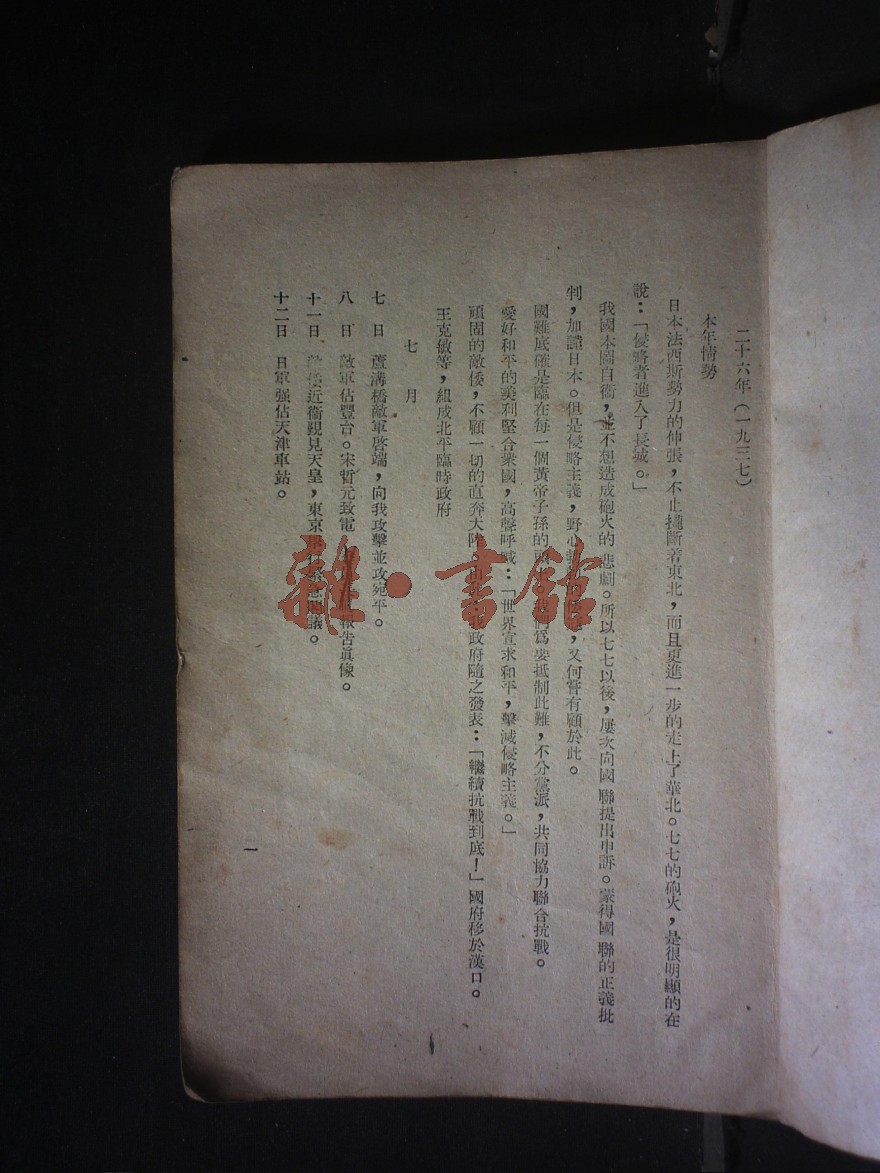 二十六年(一九三七)
本年情勢
日本法西斯勢力的伸張,不止攫斷着東北,而且更進一步的走上了華北。七七的砲火,是很明顯的在
說:「侵略者進入了長城。」
我國本圖自衞,並不想造成砲火的悲劇。所以七七以後,屢次向國聯提出申訴。蒙得國聯的正義批
判,加譴日本。但是侵略主義,野心,又何嘗有顧於此。
國難底確是臨在每一個黃帝子孫的們爲要抵制此難,不分黨派,共同協力聯合抗戰。
愛好和平的美利堅合衆國,高聲呼喊:「世界宣求和平,擊滅侵略主義。」
頑固的敵倭,不顧一切的直奔大陸政府隨之發表:「繼續抗戰到底!」國府移於漢口。
王克敏等,組成北平臨時政府
七月
七日 蘆溝橋敵軍啓端,向我攻擊並攻宛平。
八日 敵軍佔豐台。宋哲元致電報告眞像。
十一日 近衞覲見天皇,東京議。
十二日 日軍强佔天津車站。
一
雜·書館